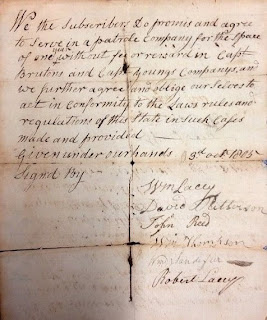 We the Subscribers Do promis and agree
to Serve in a patrole Company for the Space
of one year without fee or reward in Capt
Brutons and Capt Youngs Companys, and
we further agree and oblige our Selves to
act in Conformity to the Laws rules and
regulations of this State in Such Cases
made and provided
Given under our hands 3d octr 1805
Signd By
Wm Lacey
David Patterson
John Reed
Wm Thompson
Robert Lacey